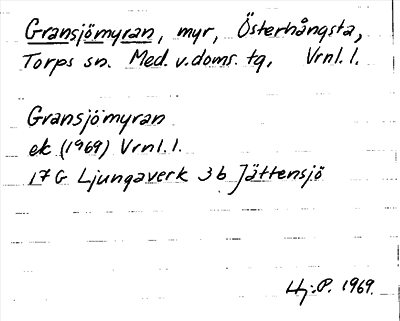 Gransjömyran, myr, Österhångsta,
Torps sn. Med. v. doms. tg. Vrnl. l.
Gransjömyran
ek (1969) Vrnl. l.
17 G Ljungaverk 3 b Jättensjö
Hj. P. 1969.